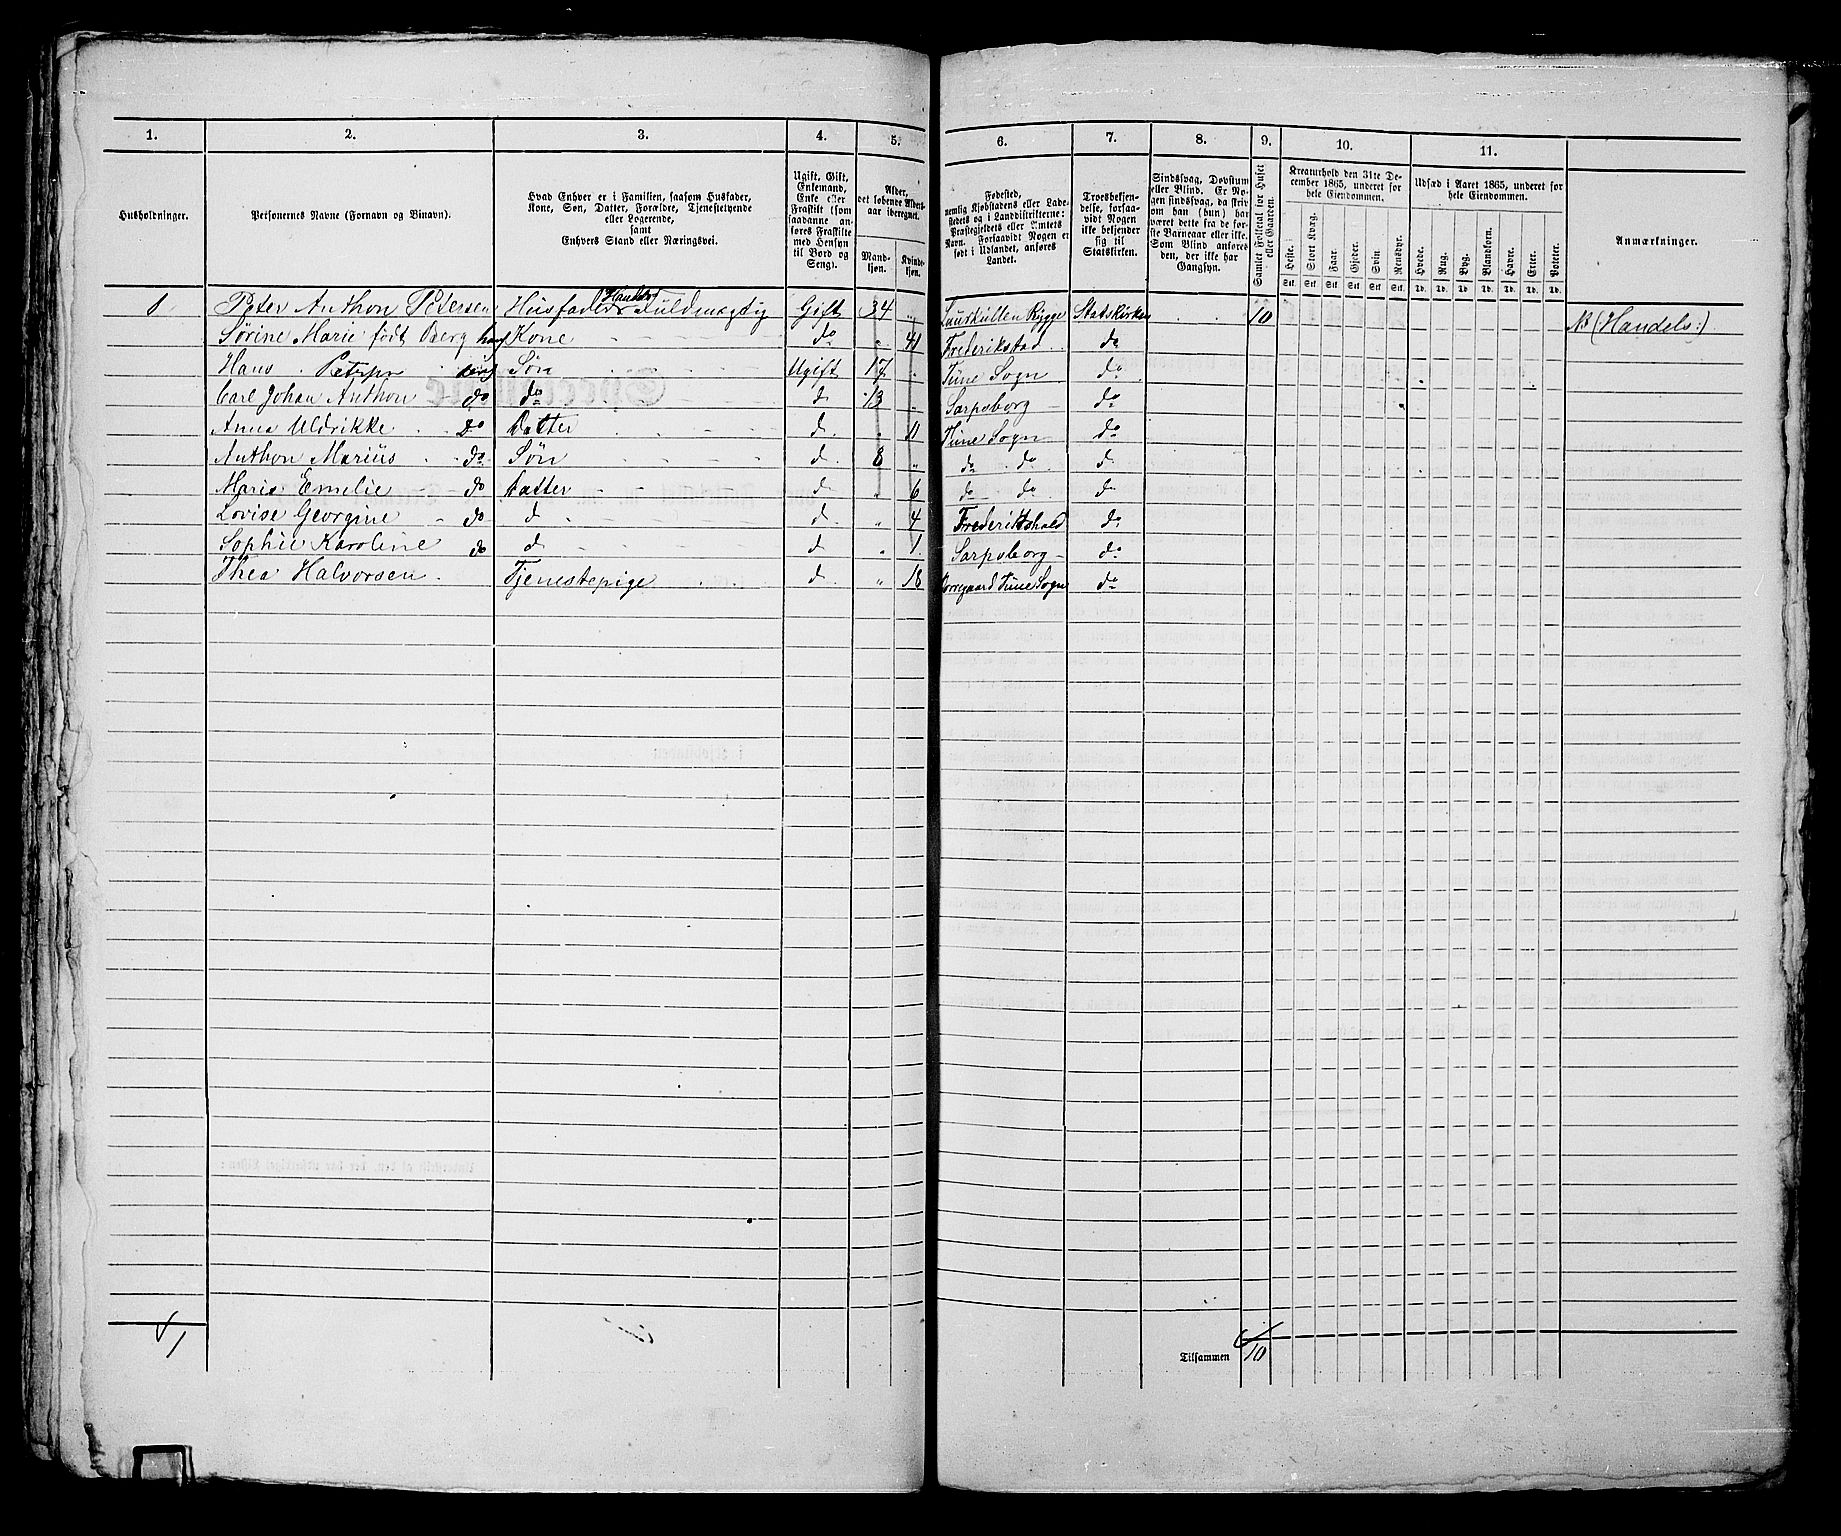 1. 2. 3. 4. 5. 6. 7. 8. 9. 10. 11.
Husholdninger.
Personernes Navne (Fornavn og Binavn).
Hvad Enhver er i Familien, saasom Husfader,
Kone, Søn, Datter, Forældre, Tjenestetyende
eller Logerende,
samt
Enhvers Stand eller Næringsvei.
Ugift, Gift,
Enkemand,
Enke eller
Fraskilt (som
saadanne an-
føres Fraskilte
med Hensyn
til Bord og
Seng).
Alder,
det løbende Alders-
aar iberegnet.
Mand-
kjøn.
Kvinde-
kjøn.
Fødested,
nemlig Kjøbstadens eller Lade-
stedets og i Landdistrikterne:
Præstegjeldets eller Amtets
Navn. Forsaavidt Nogen er
født i Udlandet, anføres
Landet.
Troesbekjen-
delse, forsaa-
vidt Nogen
ikke bekjender
sig til
Statskirken.
Sindssvag, Døvstum
eller Blind. Er No-
gen sindssvag, da skriv
om han (hun) har
været dette fra de før-
ste Barneaar eller ikke.
Som Blind anføres
den, der ikke har
Gangsyn.
Samlet Folketal for Huset
eller Gaarden.
Kreaturhold den 31te De-
cember 1865, underet for
hele Eiendommen.
Heste. Stort Kvæg. Faar. Gjeder. Svin. Rensdyr.
Stk. Stk. Stk. Stk. Stk. Stk.
Udsæd i Aaret 1865, underet for
hele Eiendommen.
Hvede. Rug. Byg. Blandkorn. Havre. Erter. Poteter.
Td. Td. Td. Td. Td. Td. Td.
Anmærkninger.
Peter Anthon Petersen Husfader Handels Fuldmægtig Gift 34 " Rygge Statskirken 10 NB (Handels:)
Sørine Marie født Berg Kone do " 41 Frederikstad do
Hans Petersen Søn Ugift 17 " Tune Sogn do
Carl Johan Anthon do do d 13 " Sarpsborg do
Anna Uldrikke do Datter d " 11 Tune Sogn do
Anthon Marius do Søn d 8 " do do d
Marie Emelie do Datter d " 6 do do d
Lovise Georgine do d d " 4 Frederikshald do
Sophie Karoline do d d " 1 Sarpsborg do
Thea Halvorsen Tjenestepige d " 18 Tune Sogn do
1
Tilsammen 10